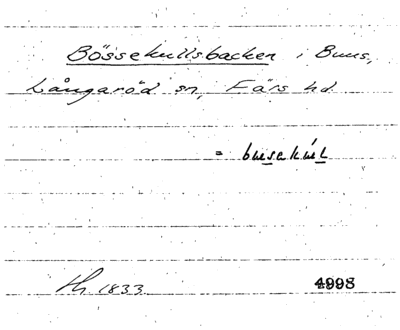 Bössekullsbacken i Buus,
Långaröd sn, Färs hd.
= busekúl
Th. 1833.
4998